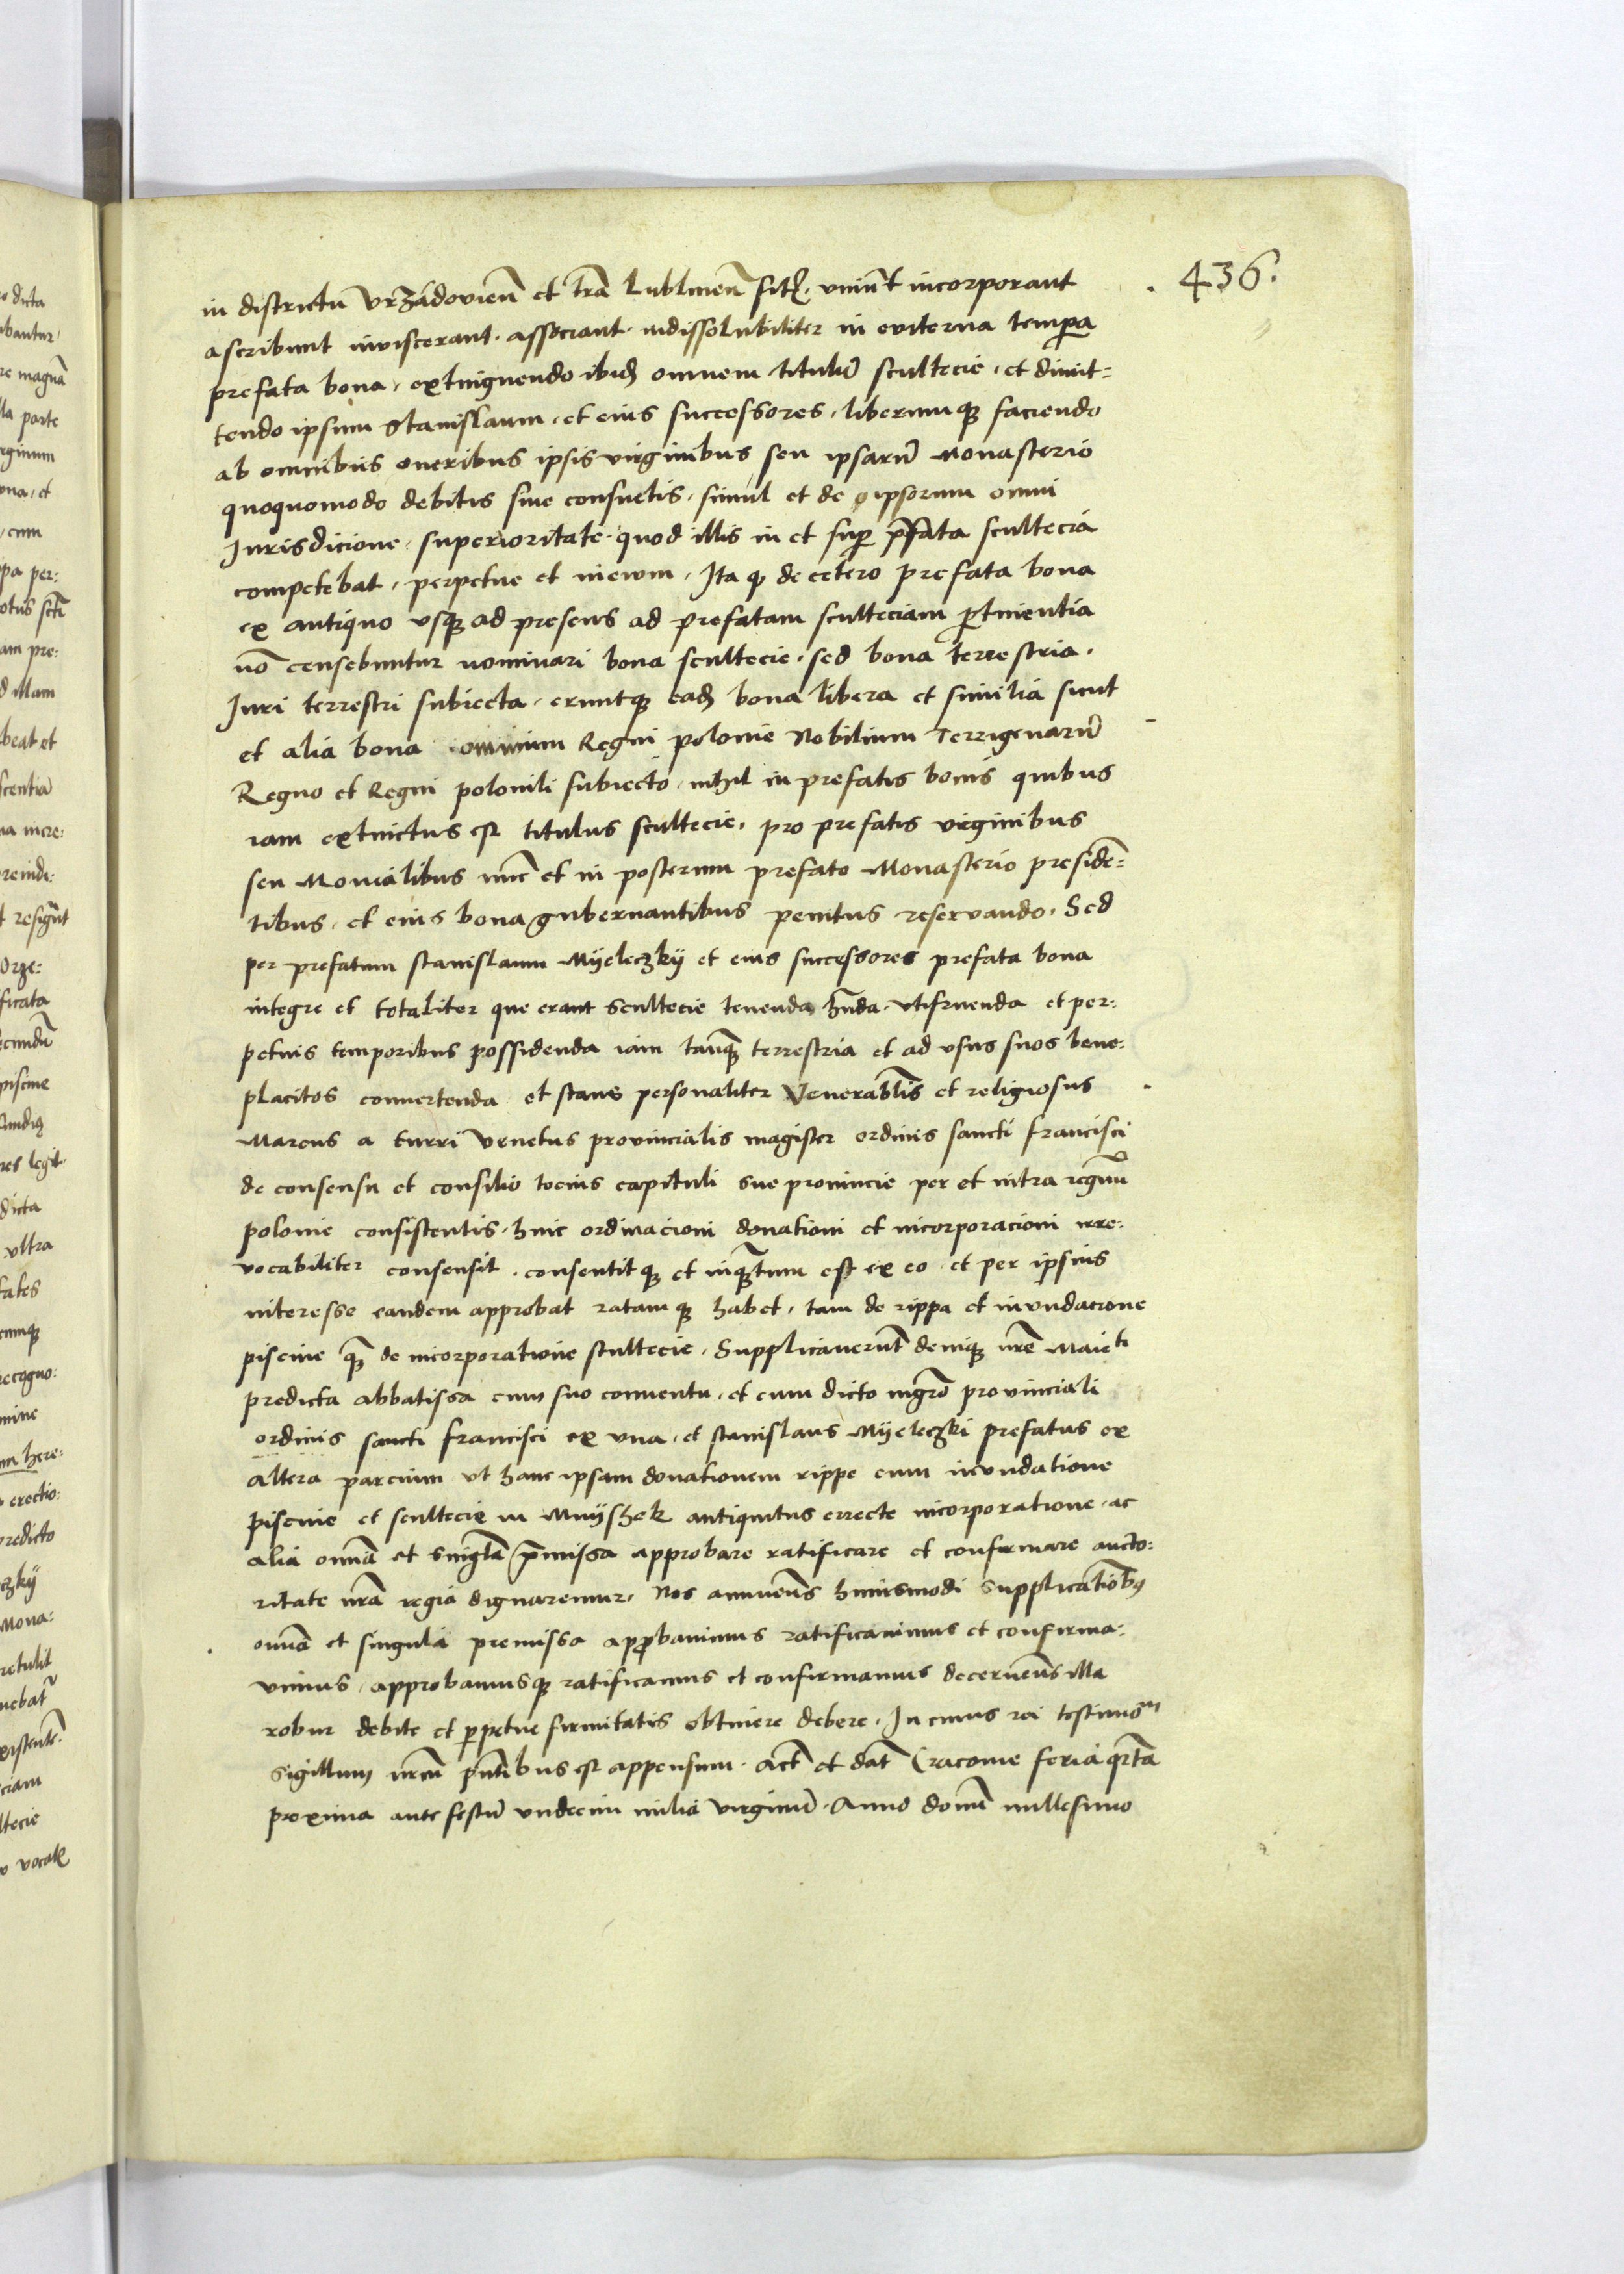 436.
in districtu Vrzandovien̄ et tr̄a Lublinen̄ sit̄. vniūt incorporant
ascribunt inviscerant. associant. indissolubiliter in eviterna temp̲a
prefata bona, extinguendo ibid̄ omnem titulū scultecie. et dimit=
tendo ipsum Stanislaum. et eius successores, liberumq̲ faciendo
ab omnibus oneribus ipsis virginibus seu ipsarū Monasterio
quoquomodo debitis siue consuetis, simul et de ipsorum omni
Iurisdicione, superioritate, quod illis in et sup̲ p̄fata scultecia
competebat, perpetue et in evum. Ita q̲ de cetero prefata bona
ex antiquo vsq̲ ad presens ad prefatam sculteciam p̲tinentia
nō censebuntur nominari bona scultecie. sed bona terrestria.
Iuri terrestri subiecta. eruntq̲ ead̄ bona libera et similia sicut
et alia bona omnium Regni polonie Nobilium Terrigenarū
Regno et Regni polonili subiecto. nihil in prefatis bonis quibus
iam extinctus est titulus scultecie, pro prefatis virginibus
seu Monialibus nūc et in posterum prefato Monasterio presidē=
tibus. et eius bona gubernantibus penitus reservando. Sed
per prefatum stanislaum Myeleczky et eius successores prefata bona
integre et totaliter que erant scultecie tenenda hn̄da. vtifruenda et per:
petuis temporibus possidenda iam tanq̲ terrestria et ad vsus suos bene:
placitos convertenda et stans personaliter Venerabl̄is et religiosus
Marcus a turri Venetus provincialis magister ordinis sancti francisci
de consensu et consilio tocius capituli sue provincie per et intra regnū
polonie consistentis. huic ordinacioni donationi et incorporacioni irre:
vocabiliter consensit. consentitq̲ et inq̲ntum est ex eo et per ipsius
interesse eandem approbat ratamq̲ habet, tam de rippa et inundacione
piscine q̲ de incorporatione scultecie. Supplicaverūt deniq̲ nr̄e Maieti
predicta abbatissa cum suo conventu. et cum dicto mgr̄o provinciali
ordinis sancti francisci ex vna. et stanislaus Myeleczki prefatus ex
altera parcium vt hanc ipsam donationem rippe cum inundatione
piscine et scultecie in Mnyshek antiquitus errecte incorporatione. ac
alia omn̄a et singl̄a p̄missa approbare ratificare et confirmare aucto:
ritate nr̄a regia dignaremur. Nos annuen̄s huiusmodi supplicationib9
omn̄a et singula premissa app̲bauimus ratificauimus et confirma:
vimus, approbamusq̲ ratificamus et confirmamus decernen̄s illa
robur debite et p̲petue firmitatis obtinere debere. In cuius rei testimom̄
sigillum nrm̄ pn̄tibus est appensum. Act̄ et dat̄ Cracovie feria q̲rta
proxima ante festū vndecim milia virginū. Anno domī millesimo